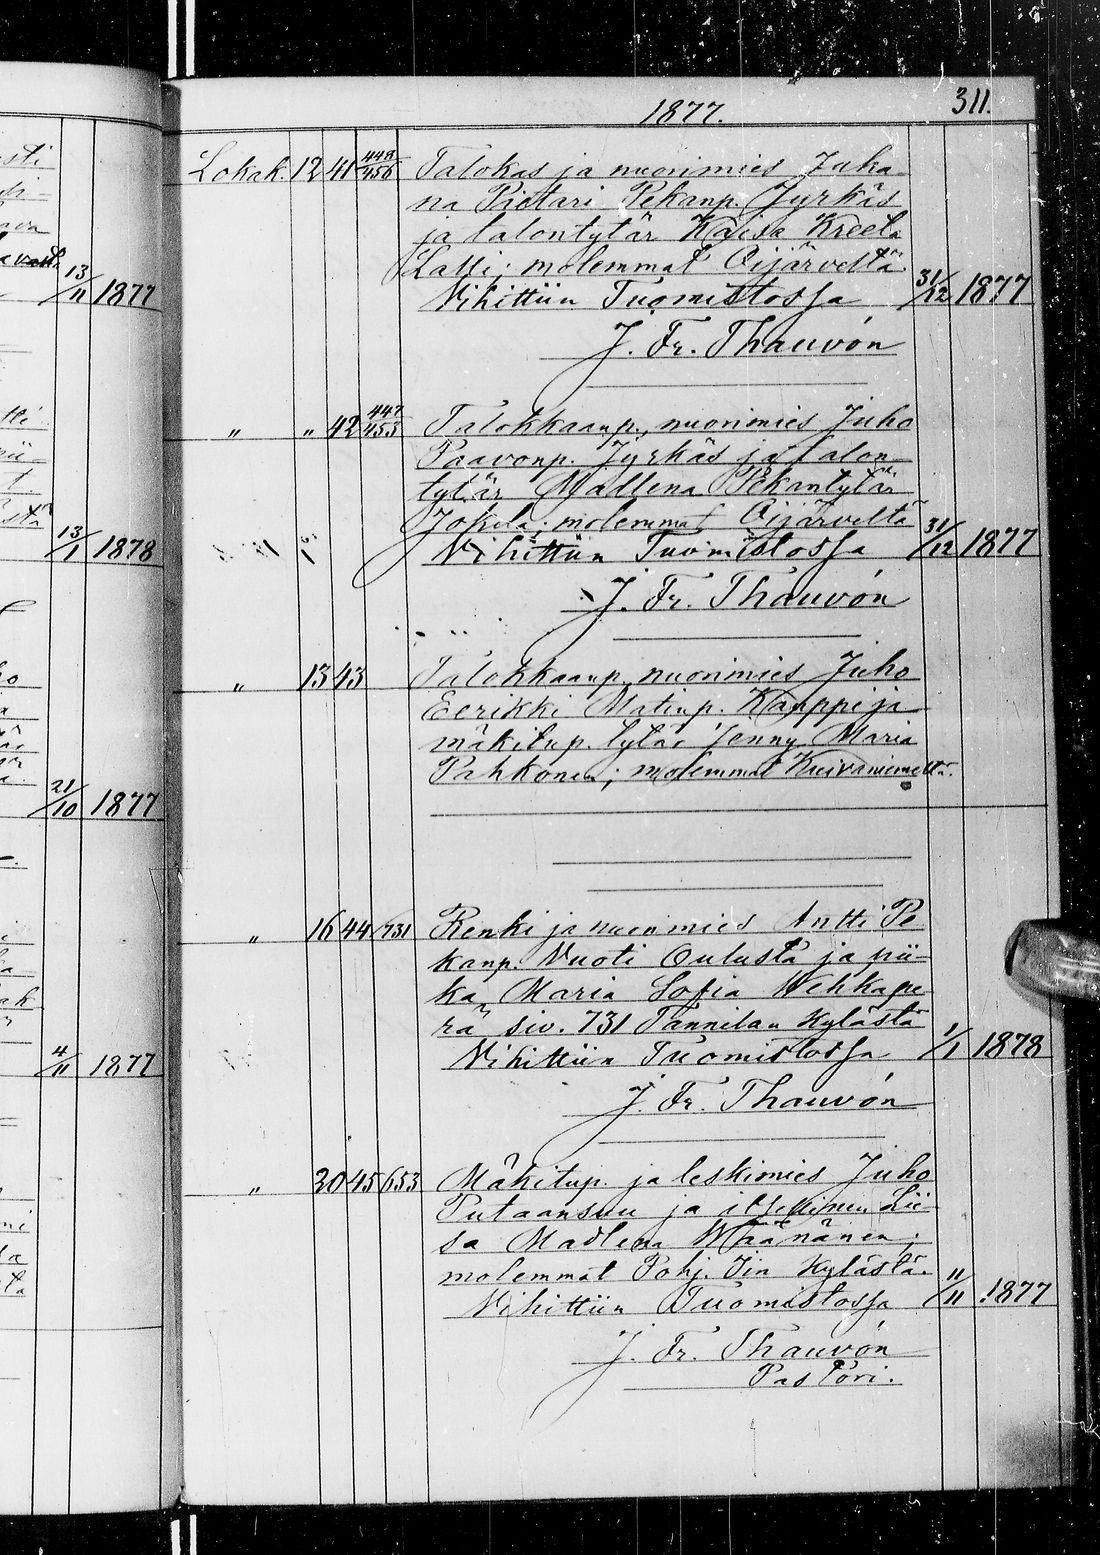 1877.
311.
Lokak. 12 41 448/456 Talokas ja nuorimies Juha-
na Pietari Pekanp. Jyrkäs
ja talontytär Kaisa Kreeta
Lassi; molemmat Oijärveltä.
Vihittiin Tuomistossa 31/12 1877
J. Fr. Thauvón
" " 42 447/453 Talokkaanp., nuorimies Juho
Paavonp. Jyrkäs ja talon-
tytär Mallena Pekantytär
Jokela; molemmat Oijärveltä
Vihittiin Tuomistossa 31/12 1877
J. Fr. Thauvón
" 13 43 Talokkaanp. nuorimies Juho
Eerikki Matinp. Kauppi ja
mäkitup. tytär Jenny Maria
Pahkonen; molemmat Kuivaniemeltä.
" 16 44 731 Renki ja nuorimies Antti Pe-
kanp. Vuoti Oulusta ja pii-
ka Maria Sofia Wehkape-
rä siv. 731 Tannilan kylästä
Vihittiin Tuomistossa 1/1 1878
J. Fr. Thauvón
" 20 45 653 Mäkitup. ja leskimies Juho
Putaansuu ja itsellinen Lii-
sa Madlena Määnänen;
molemmat Pohj. Iin kylästä.
Vihittiin Tuomistossa 11/11 1877
J. Fr. Thauvón
Pastori.
13/11 1877
13/1 1878
21/10 1877
4/11 1877